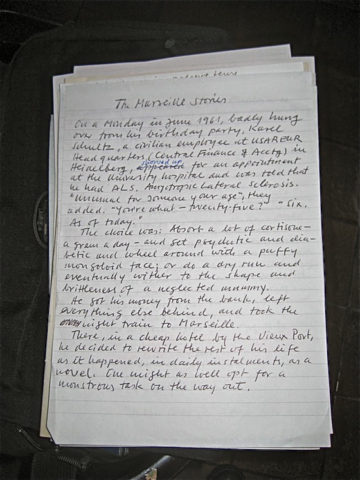 The Marseille Stories
On a Monday in June 1961, badly hung
over from his birthday party, Karel
Schultz, a civilian employee at USAREUR
Headquarters (Central Finance & Acctg) in
Heidelberg, appeared showed up for an appointment
at the University hospital and was told that
he had ALS. Amyotrophic Lateral Sclerosis.
"Unusual for someone your age", they
added. "You're what – twenty-five?" – "Six,
As of today."
The choice was: Absorb a lot of cortisone –
a gram a day – and get psychotic and dia-
betic and wheel around with a puffy
mongoloid face; or do a dry run and
eventually wither to the shape and
brittleness of a neglected mummy.
He got his money from the bank, left
everything else behind, and took the
night train to Marseille.
There, in a cheap hotel by the Vieux Port,
he decided to rewrite the rest of his life
as it happened, in daily instalments, as a
novel. One might as well opt for a
monstrous task on the way out.